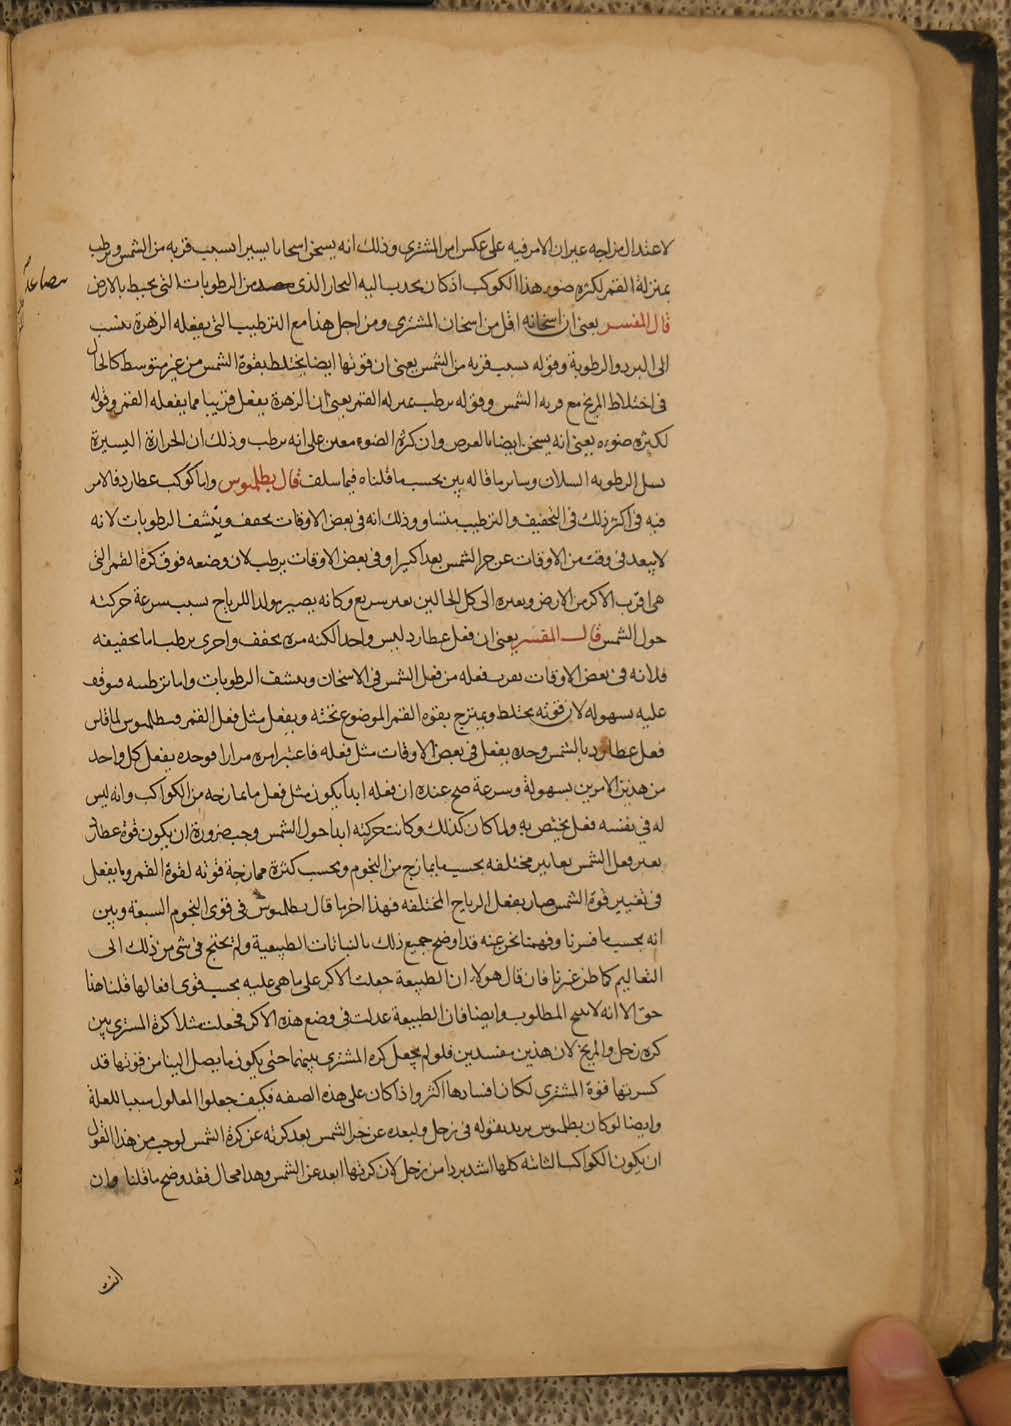 لاعتدال مزاجه غير ان الامر فيه على عكس امر المشتري وذلك انه يسخن اسخانا يسيرا بسبب قربه من الشمس ويرطب
بمنزلة القمر لكثره ضوء هذا الكوكب اذ كان يجذب اليه البخار الذي من الرطوبات التي تحيط بالارض
قال المفسر يعني ان اسخانه اقل من اسخان المشتري ومن اجل هذا مع الترطيب التي يفعله الزهرة تنسب
الى البرد والرطوبة وقوله بسبب قربه من الشمس يعني ان قوتها ايضا يختلط بقوة الشمس من غير متوسط كالحال
في اختلاط المريخ مع قربه الشمس وقوله يرطب بمنزله القمر يعني ان الزهرة يفعل قريبا مما يفعله القمر وقوله
لكثره ضوءه يعني انه يسخن ايضا بالعرض وان كثره الضوء معين على انه يرطب وذلك ان الحرارة اليسيرة
تسيل الرطوبه السلان وساير ما قاله بين بحسب ما قلناه فيما سلف قال بطلميوس واما كوكب عطارد فالامر
فيه في اكثر ذلك في التجفيف والترطيب متساو وذلك انه في بعض الاوقات يجفف وينشف الرطوبات لانه
لا يبعد في وقت من الاوقات عن حر الشمس بعدا كثيرا وفي بعض الاوقات يرطب لان وضعه فوق كرة القمر التي
هي اقرب الاكر من الارض وتغيره الى كل الحالين تغير سريع وكانه يصير مولدا للرياح بسبب سرعة حركته
حول الشمس قال المفسر يعني ان فعل عطارد ليس واحدا لكنه مره يجفف واخرى يرطب اما تجفيفه
فلانه في بعض الاوقات يقرب فعله من فعل الشمس في الاسخان وينشف الرطوبات واما ترطيبه فيوقف
عليه بسهوله لان قوته يختلط ويمتزج بقوه القمر الموضوع تحته ويفعل مثل فعل القمر فبطلميوس لما قاس
فعل عطارد بالشمس وجده يفعل في بعض الاوقات مثل فعله فاعتبر امره مرارا فوجده يفعل كل واحد
من هذين الامرين بسهولة وبسرعة صح عنده ان فعله ابدا يكون مثل فعل ما يمازجه من الكواكب وانه ليس
له في نفسه فعل يختص به ولما كان كذلك وكانت حركته ابدا حول الشمس وجب ضرورة ان يكون قوة عطارد
يغير فعل الشمس تغايير مختلفه بحسب ما يمازج من النجوم وبحسب كثرة ممازجة قوته لقوة القمر ولما يفعل
في تغيير قوة الشمس صار يفعل الرياح المختلفه فهذا اخر ما قال بطلميوس في قوى النجوم السبعة وبين
انه بحسب ما فسرنا وفهمنا نحن عنه قد اوضح جميع ذلك بالبيانات الطبيعية ولم يحتج في شي من ذلك الى
التعاليم كما ظن غيرنا فان قال هولاء ان الطبيعة جعلت الاكر على ما هي عليه بحسب قوى افعالها قلنا هذا
حق الا انه لا ينتج المطلوب وايضا فان الطبيعة عدلت في وضع هذه الاكر فجعلت مثلا كرة المشتري بين
كره زحل والمريخ لان هذين مفسدين فلو لم يجعل كره المشتري بينهما حتى يكون ما يصل الينا من قوتها قد
كسرتها قوة المشتري لكان افسادها اكثر واذا كان على هذه الصفه فكيف جعلوا المعلول سببا للعلة
وايضا لو كان بطلميوس يريد بقوله في زحل ولبعده عن حر الشمس بعد كرته عن كرة الشمس لوجب من هذا القول
ان يكون الكواكب الثابته كلها اشد بردا من زحل لان كرتها ابعد عن الشمس وهذا محال فقد وضح ما قلنا وان